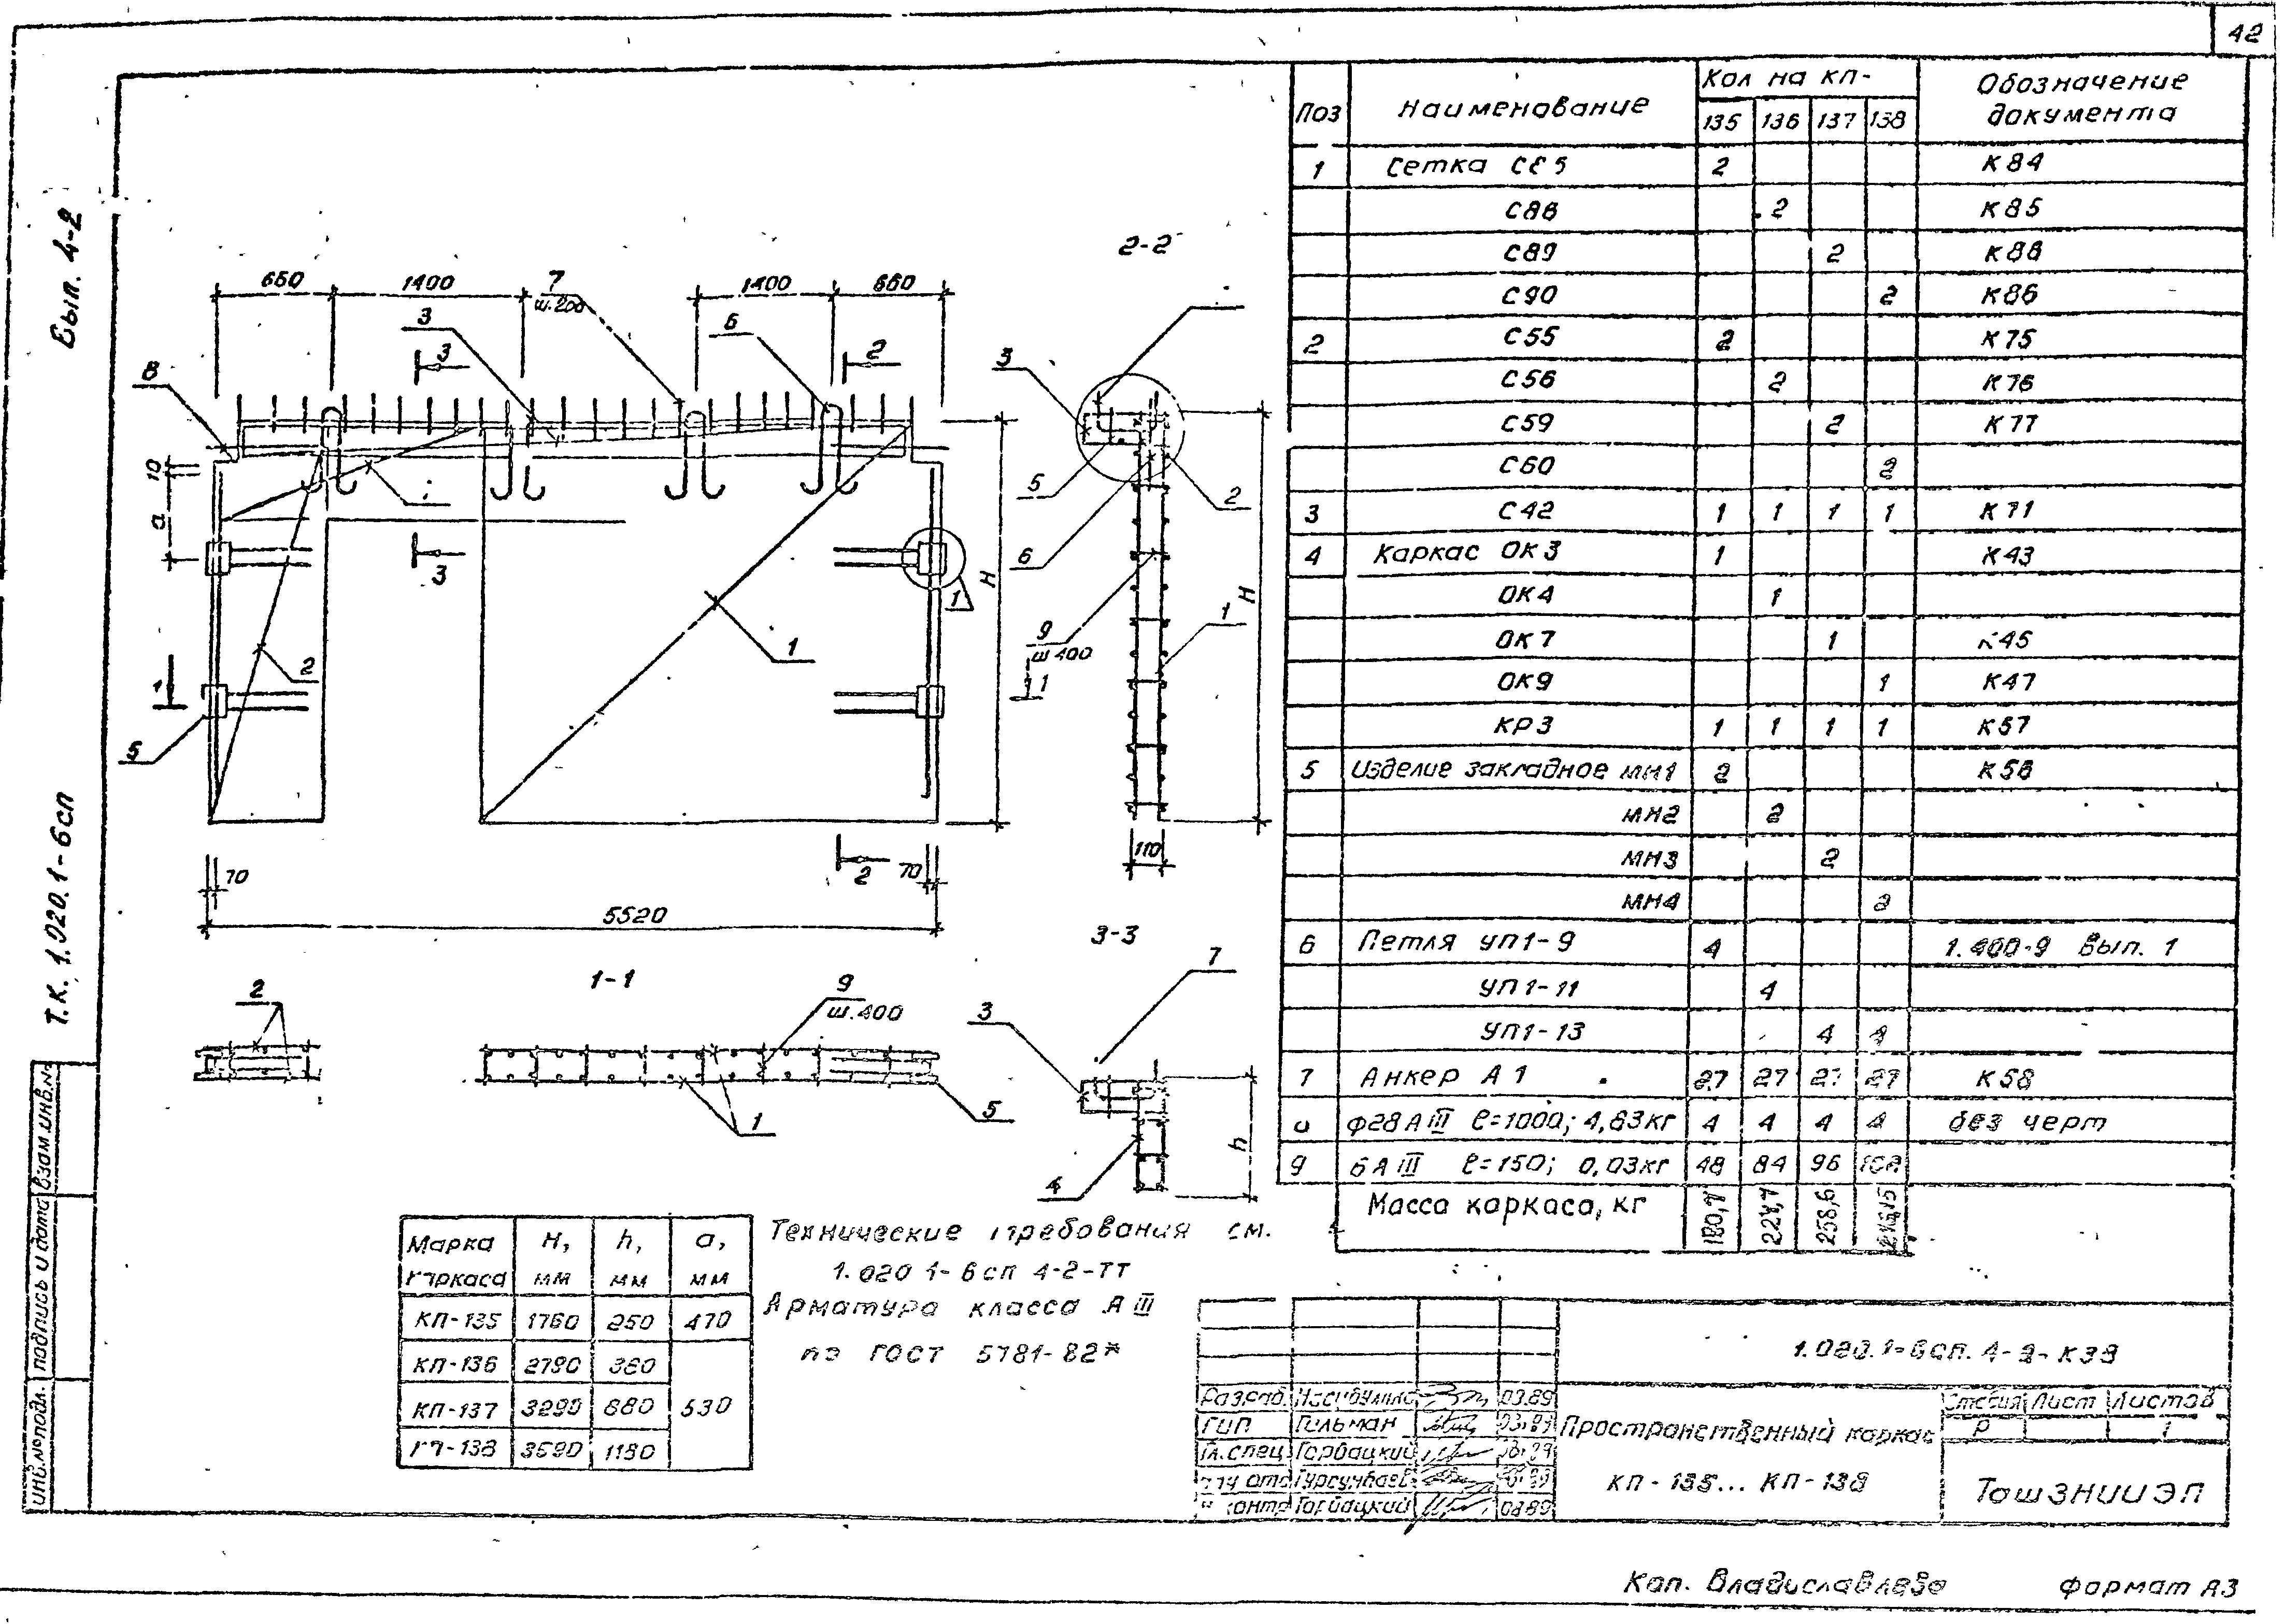 42
Вып. 4-2
Т.К. 1.020.1-6сп
Взам.инв.№
Подпись и дата
Инв.№подл.
660
1400
7
ш.200
1400
660
3
6
3
2
8
10
а
3
1
Н
1
2
1
1
5
70
2
70
5520
2-2
3
5
2
6
9
ш 400
1
Н
110
1-1
2
9
ш.400
1
5
3-3
7
3
4
h
Поз
Наименование
Кол на КП-
Обозначение документа
135 136 137 138
1 Сетка С85 2 К84
С86 2 К85
С89 2 К88
С90 2 К86
2 С55 2 К75
С56 2 К76
С59 2 К77
С60 2
3 С42 1 1 1 1 К71
4 Каркас ОК3 1 К43
ОК4 1
ОК7 1 К45
ОК9 1 К47
КР3 1 1 1 1 К57
5 Изделие закладное МН1 2 К58
МН2 2
МН3 2
МН4 2
6 Петля УП1-9 4 1.400-9 Вып. 1
УП1-11 4
УП1-13 4 4
7 Анкер А1 27 27 27 27 К58
ф28АIII ℓ=1000; 4,83кг 4 4 4 4 без черт
9 6АIII ℓ=150; 0,03кг 48 84 96 108
Масса каркаса, кг 258,6
Марка каркаса Н, мм h, мм а, мм
КП-135 1760 250 470
КП-136 2790 380
КП-137 3290 880 530
КП-138 3590 1180
Технические требования см.
1.020 1-6сп 4-2-ТТ
Арматура класса АIII
по ГОСТ 5781-82*
1.020.1-6сп. 4-2-К38
Разраб. 03.89
ГИП Гильман 03.89
Гл.спец Горбацкий
Нач отд
Н контр Горбацкий 03.89
Пространственный каркас
КП-135... КП-138
Стадия Лист Листов
Р 1
ТашЗНИИЭП
Кап. Владиславлева Формат А3